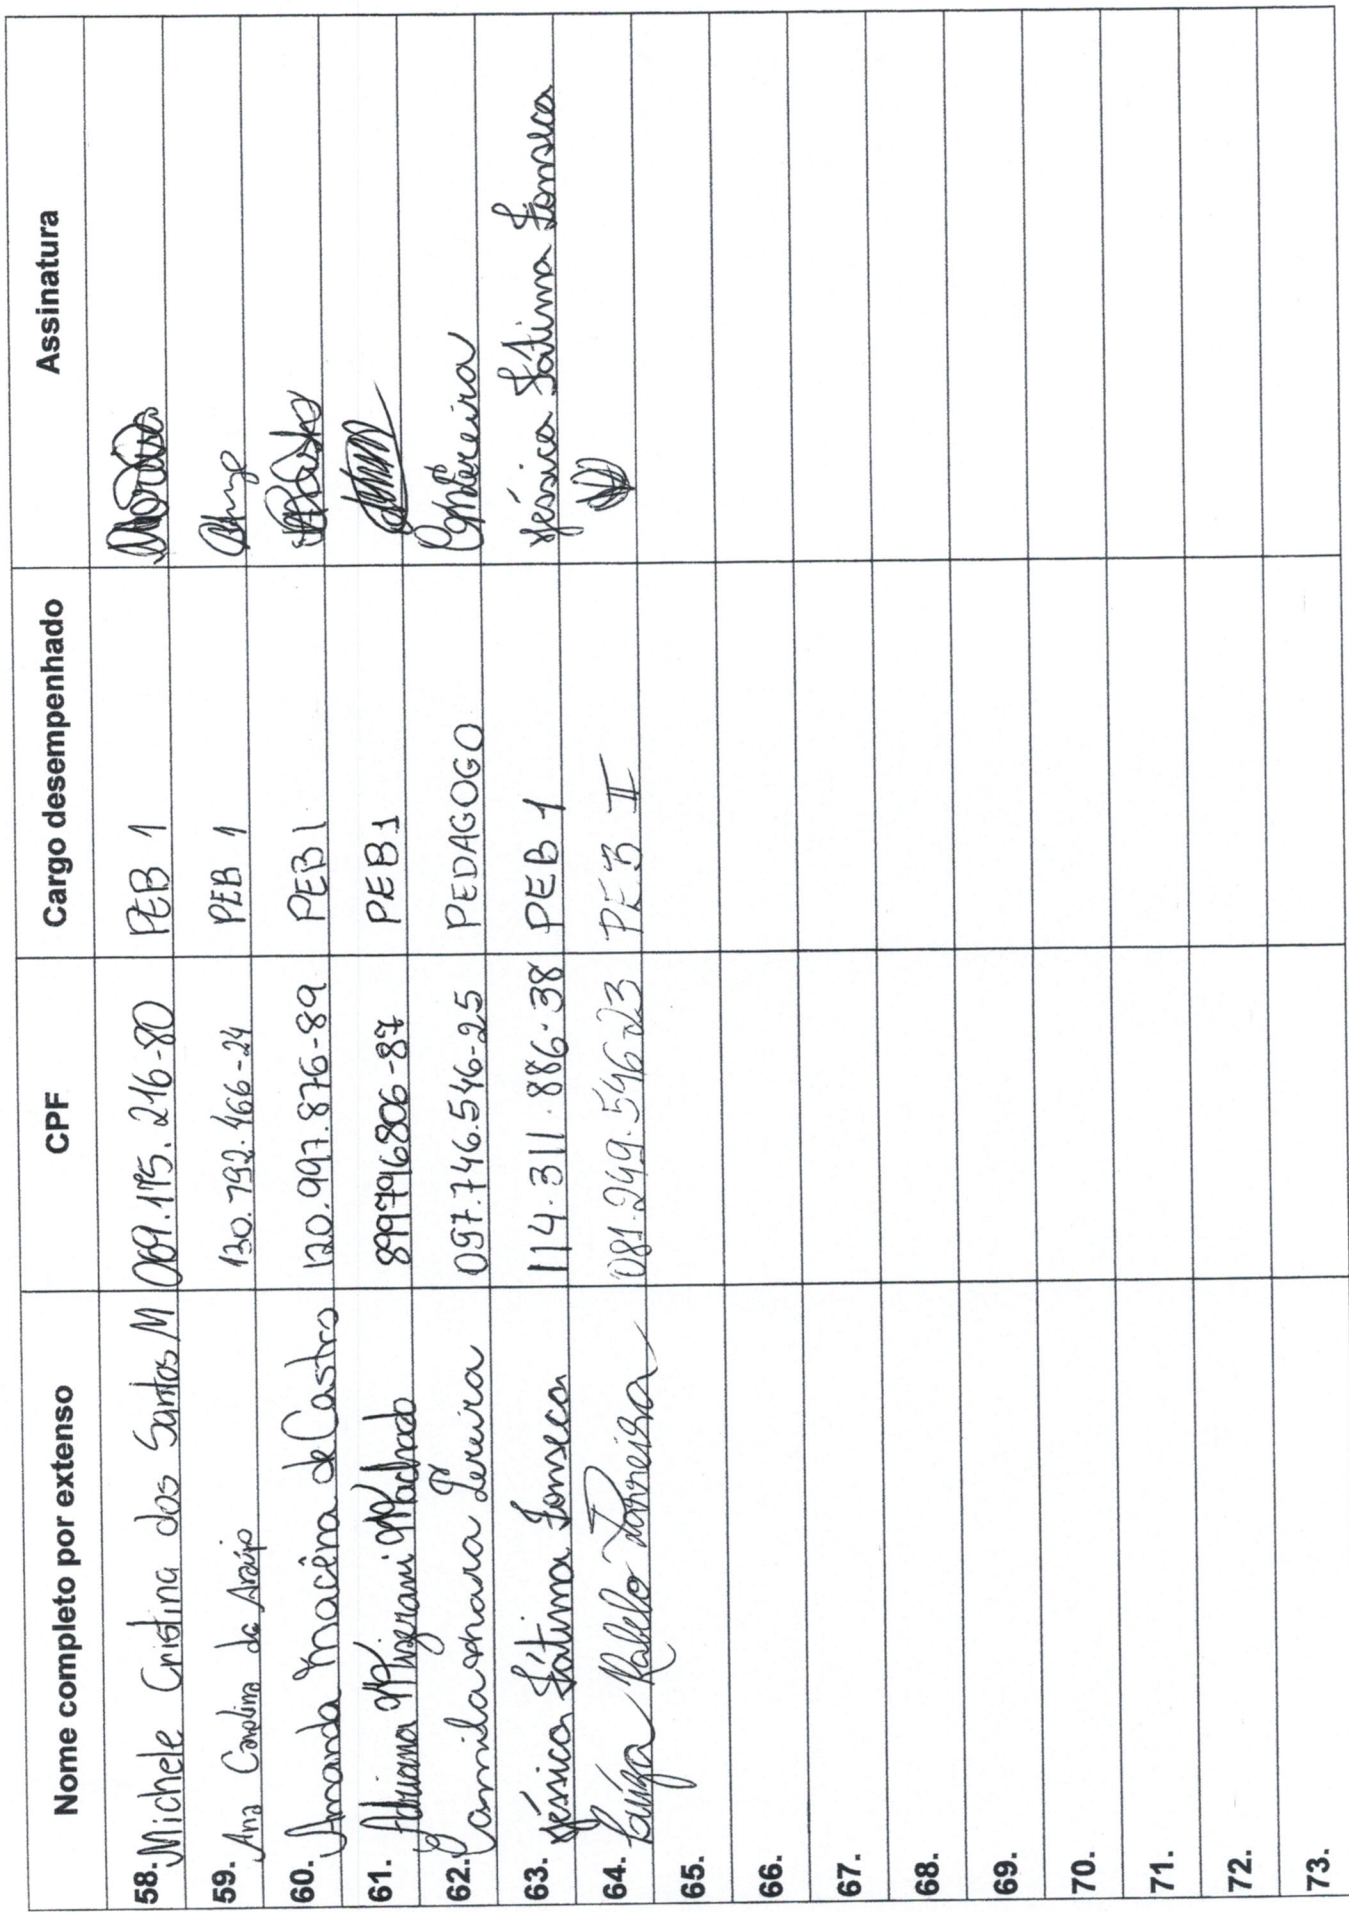 Nome completo por extenso CPF Cargo desempenhado Assinatura
58. Michele Cristina dos Santos M 069.175.216-80 PEB 1
59. Ana Carolina de Araújo 130.792.466-24 PEB 1
60. Amanda Macêna de Castro 120.997.876-89 PEB 1 ACastro
61. Adriana Machado 899796806-87 PEB 1
62. Camila Pereira 097.746.546-25 PEDAGOGO CPereira
63. Jéssica Fátima Fonseca 114.311.886-38 PEB 1 Jéssica Fátima Fonseca
64. Luíza Rabelo Parreira 081.249.546-23 PEB II
65.
66.
67.
68.
69.
70.
71.
72.
73.